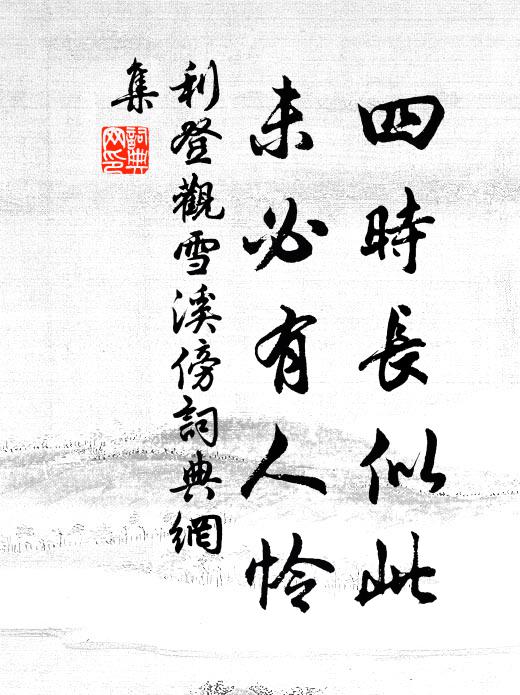 四時長似此
未必有人怜
利登觀雪溪傍詞典網
集
詞典
网印